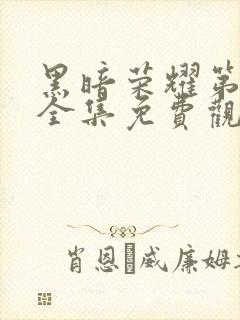 黑暗荣耀第
全集免費觀
肖恩·威廉姆